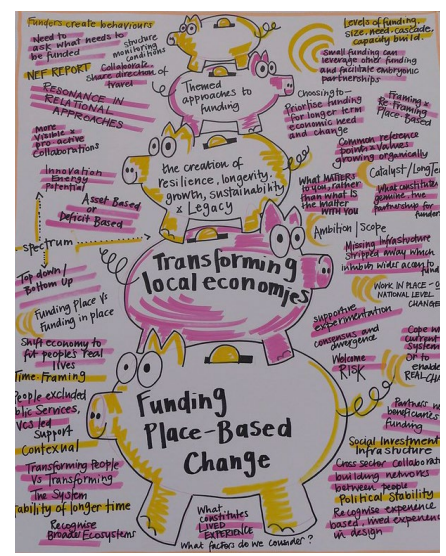 Funders create behaviours
Need to
ask what needs to
be funded
structure
monitoring
conditions
NEF REPORT
Collaborate
share direction of
travel
RESONANCE IN
RELATIONAL
APPROACHES
More
Visible x
pro-active
Collaborations
Innovation
Energy
Potential
Asset Based
or
Deficit Based
spectrum
Top down/
Bottom Up
Funding Place Vs
Funding in place
Shift economy to
fit people's real
lives
Time-Framing
People excluded
Services,
led
Support
Contextual
Transforming People
Vs Transforming
The System
ability of longer time
Recognise
Broader Ecosystems
Themed
approaches to
funding
the creation of
resilience, longevity,
growth, sustainability
x Legacy
Transforming
local economies
Funding
Place-Based
Change
What
constitutes
LIVED
EXPERIENCE
What factors do we consider?
Levels of funding,
size, need, cascade,
capacity build.
Small funding can
leverage other funding
and facilitate embryonic
partnerships
Choosing to
Prioritise funding
for longer term
economic need
and change
Framing x
Re-Framing
Place-Based
Common reference
points x Values
growing organically
What MATTERS
to you, rather
than what IS
the matter
WITH YOU
Catalyst/
What constitutes
genuine, true
partnership for
Ambition | Scope
Missing Infrastructure
stripped away which
inhibits wider access to
WORK IN PLACE -
NATIONAL LEVEL
CHANGE
supportive
experimentation
consensus and
convergence
Welcome
RISK
Cope
current
System
Or to
enable
REAL
Partners
beneficiaries
funding
Social Investment
Infrastructure
Cross sector
building networks
between people
Political Stability
Recognise experience
based, lived experience
in design